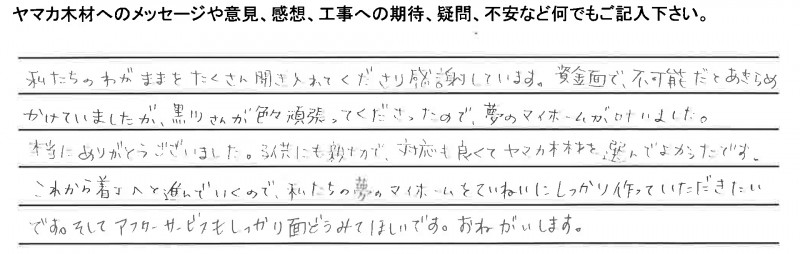 ヤマカ木材へのメッセージや意見、感想、工事への期待、疑問、不安など何でもご記入下さい。
私たちのわがままをたくさん聞き入れてくださり感謝しています。資金面で、不可能だとあきらめ
かけていましたが、黒川さんが色々頑張ってくださったので、夢のマイホームが叶いました。
本当にありがとうございました。子供にも親切で、対応も良くてヤマカ木材を選んでよかったです。
これから着工へと進んでいくので、私たちの夢のマイホームをていねいにしっかり作っていただきたい
です。そしてアフターサービスもしっかり面どうみてほしいです。おねがいします。